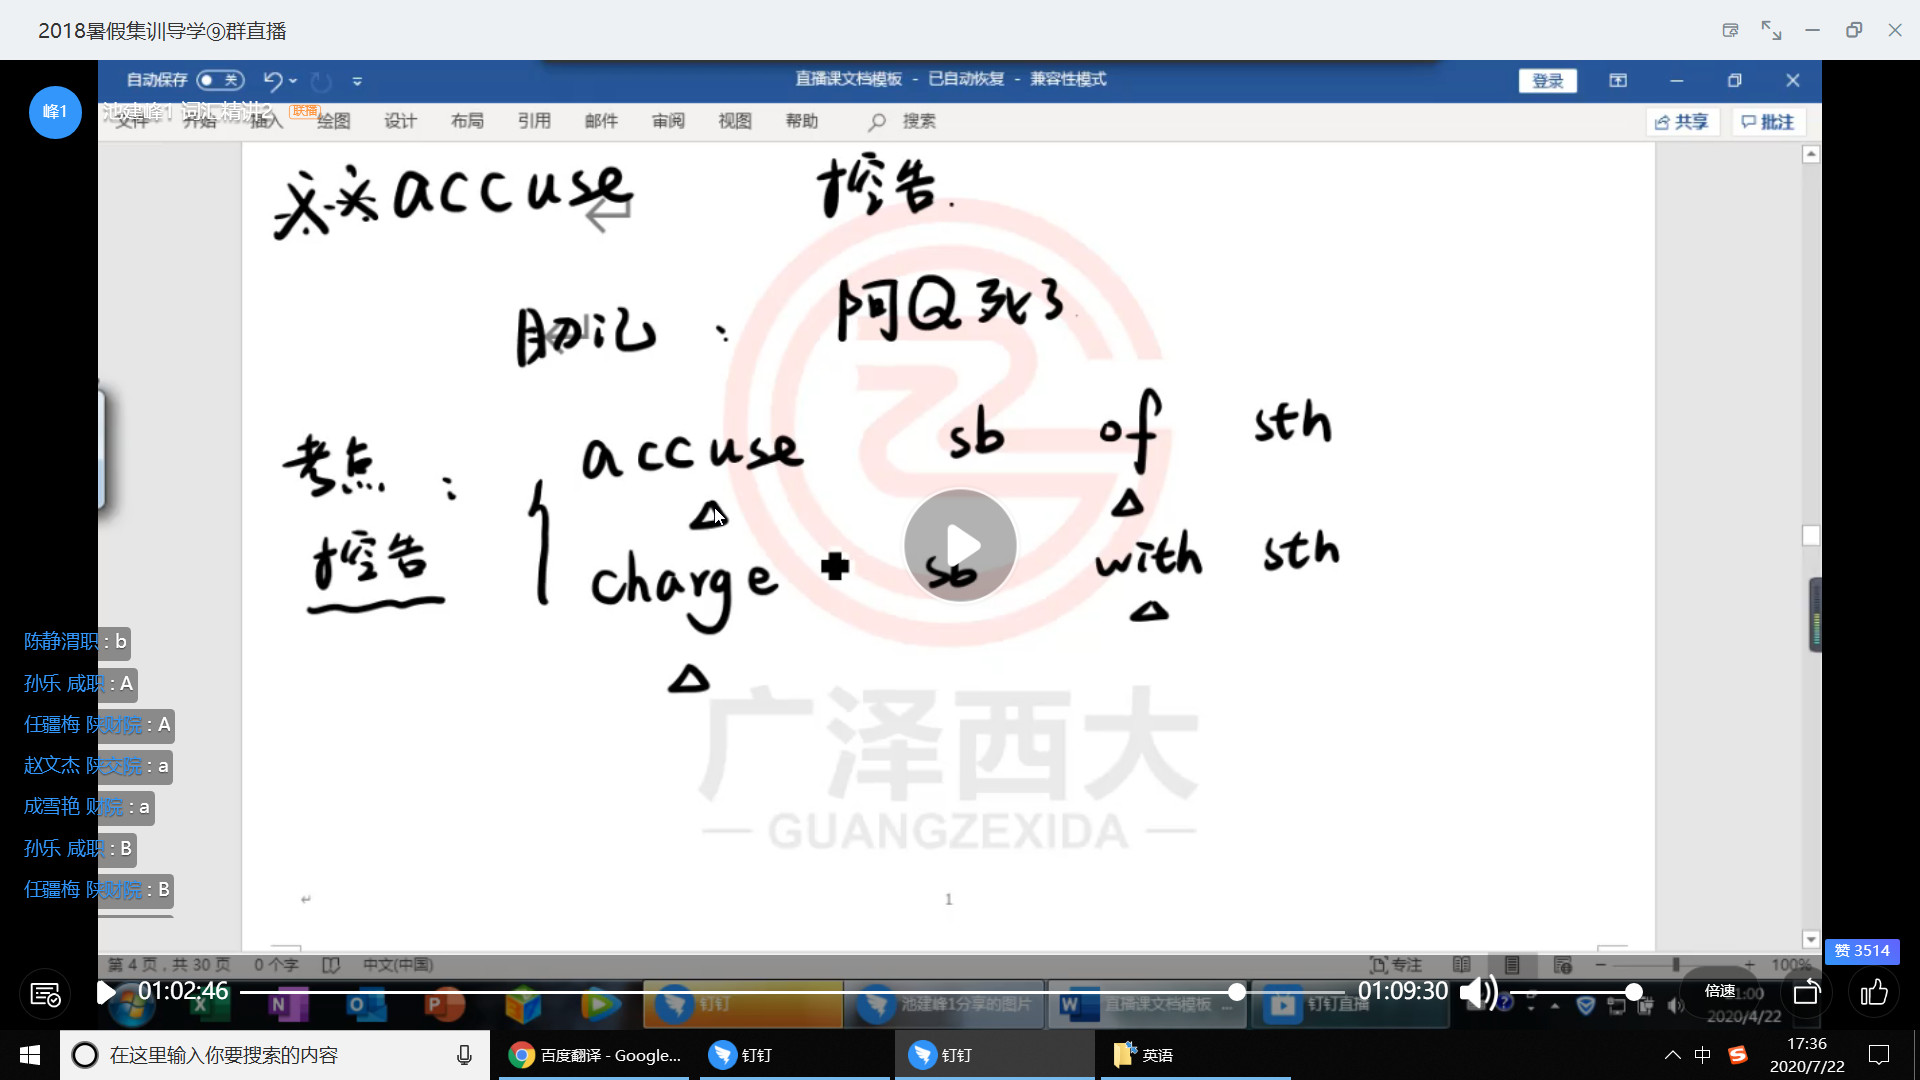 2018暑假集训导学⑨群直播
自动保存 关
直播课文档模板 - 已自动恢复 - 兼容性模式
登录
峰1
池建峰1 词汇精讲2 联播
文件 开始 插入 绘图 设计 布局 引用 邮件 审阅 视图 帮助 搜索
共享 批注
accuse 控告.
助记 : 阿Q死了
考点 : accuse sb of sth
控告 charge sb with sth
广泽西大
— GUANGZEXIDA —
陈静渭职 : b
孙乐 咸职 : A
任疆梅 陕财院 : A
赵文杰 陕交院 : a
成雪艳 财院 : a
孙乐 咸职 : B
任疆梅 陕财院 : B
1
赞 3514
第 4 页，共 30 页 0 个字 中文(中国) 专注 100%
01:02:46 01:09:30 倍速
钉钉 池建峰1分享的图片 直播课文档模板 ... 钉钉直播
2020/4/22
在这里输入你要搜索的内容
百度翻译 - Google... 钉钉 钉钉 英语
中 17:36
2020/7/22